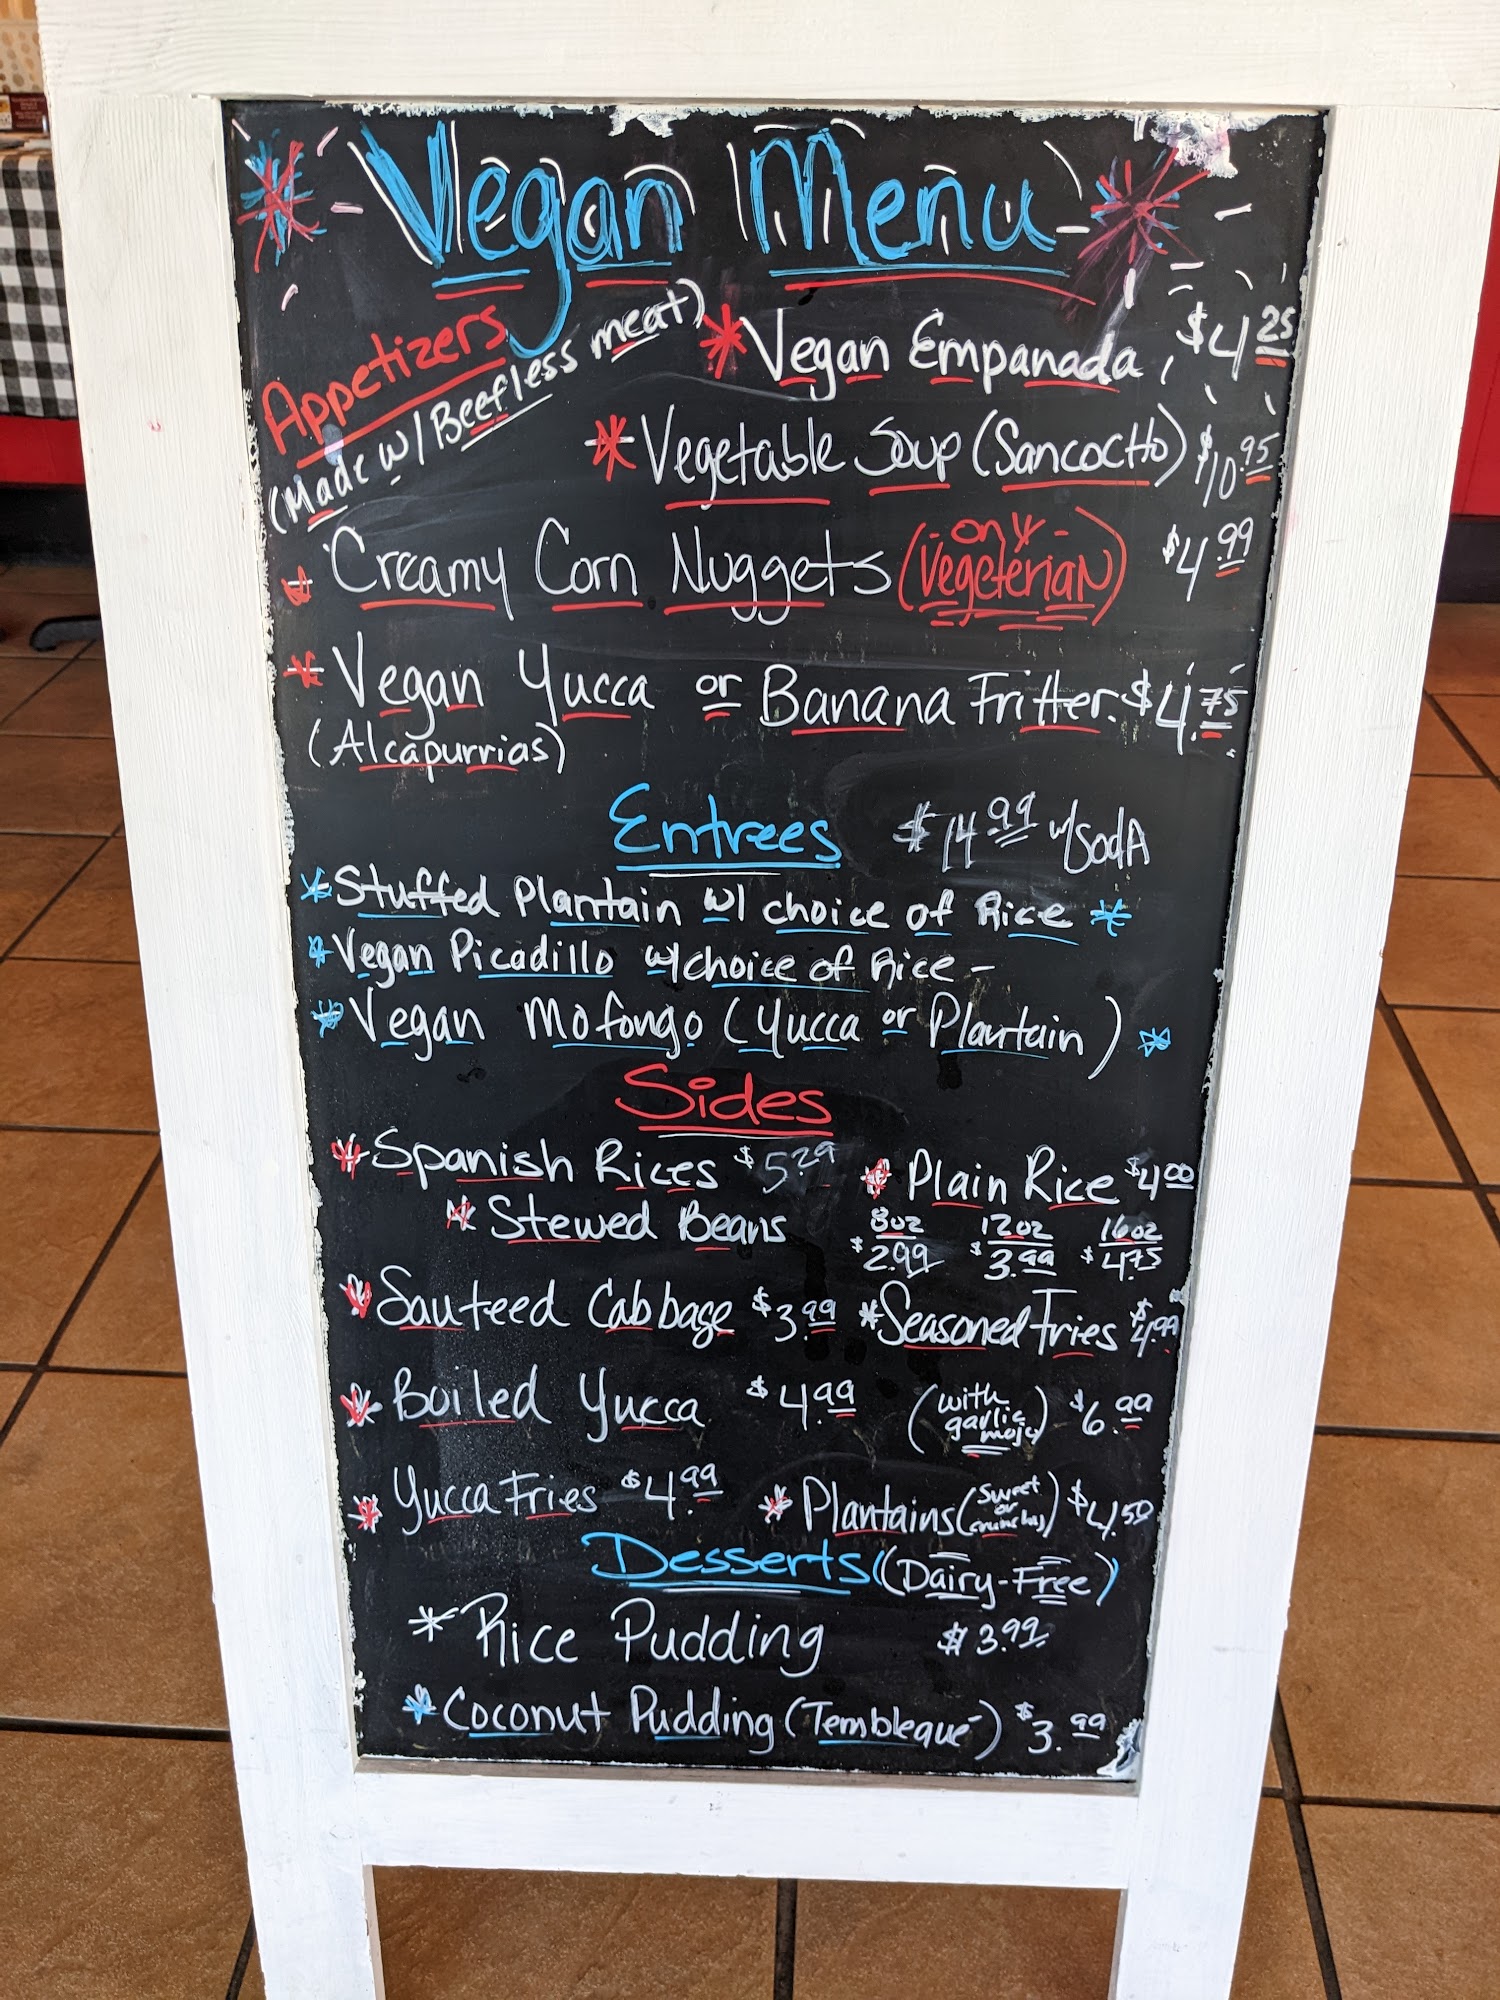 Vegan Menu
Appetizers
(Made w/ Beefless meat)
Vegan Empanada $4.25
Vegetable Soup (Sancocho) $10.95
Creamy Corn Nuggets (only Vegeterian) $4.99
Vegan Yucca or Banana Fritter. $4.75
(Alcapurrias)
Entrees $14.99 w/ Soda
Stuffed Plantain w/ choice of Rice
Vegan Picadillo w/ choice of Rice -
Vegan Mofongo (Yucca or Plantain)
Sides
Spanish Rices $5.29
Plain Rice $4.00
Stewed Beans 8oz $2.99 12oz $3.99 16oz $4.75
Sauteed Cabbage $3.99
Seasoned Fries $4.99
Boiled Yucca $4.99 (with garlic mojo) $6.99
Yucca Fries $4.99
Plantains (Sweet or) $4.50
Desserts (Dairy-Free)
Rice Pudding $3.99
Coconut Pudding (Tembleque) $3.99